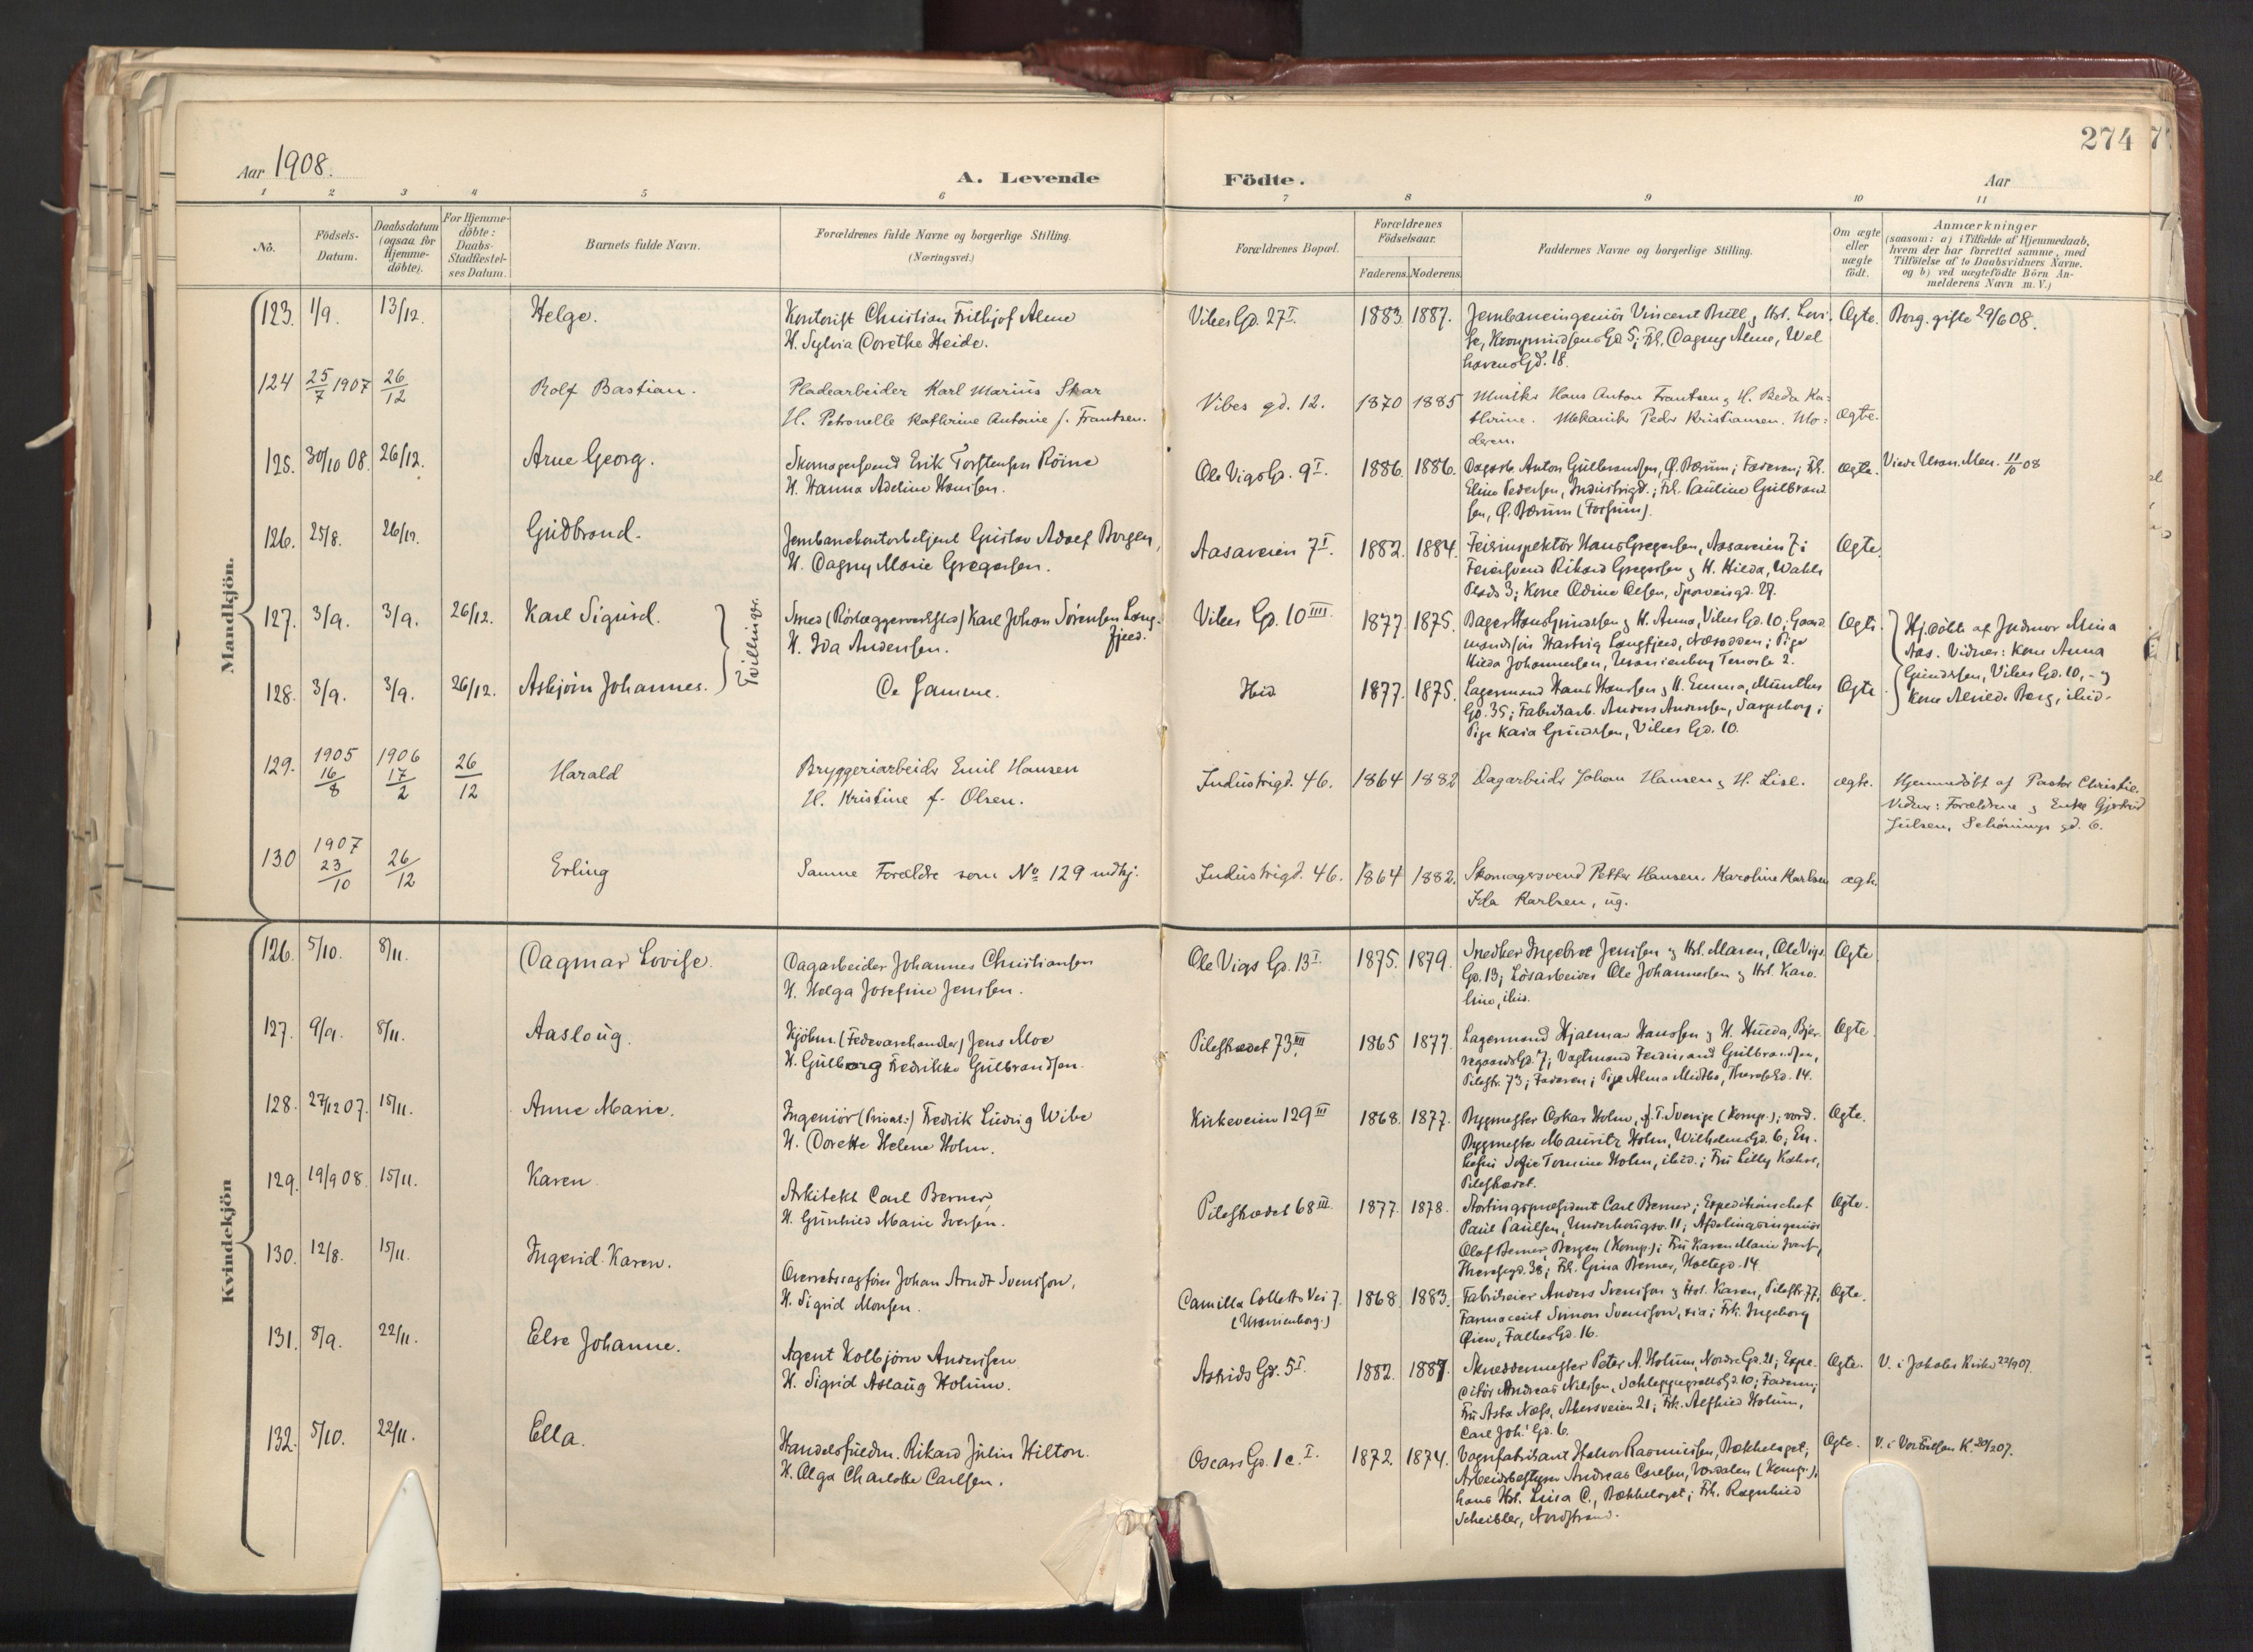 274
Aar 1908.
A. Levende
Födte.
Aar
1 2 3 4 5 6 7 8 9 10 11
No.
Födsels-Datum.
Daabsdatum (ogsaa for Hjemme-döbte).
For Hjemme-döbte: Daabs-Stadfæstel-ses Datum.
Barnets fulde Navn.
Forældrenes fulde Navne og borgerlige Stilling.
(Næringsvei.)
Forældrenes Bopæl.
Forældrenes Födselsaar.
Faderens. Moderens.
Faddernes Navne og borgerlige Stilling.
Om ægte eller uægte födt.
Anmærkninger
(saasom: a) i Tilfælde af Hjemmedaab,
hvem der har forrettet samme, med
Tilföielse af to Daabsvidners Navne.
og b) ved uægtefödte Börn An-
melderens Navn m. V.)
Mandkjön.
123. 1/9. 13/12. Helge.
Kontorist Christian Frithjof Alme
H. Sylvia Dorethe Heide.
Vibes Gd. 27 I. 1883. 1887.
Jernbaneingeniör Vincent Büll & Hst. Lovi-
se, 5; Frk. Dagny Alme, Wel
havensGd. 18.
Ægte. Borg. gifte 29/6 08.
124 25/7 1907 26/12 Rolf Bastian.
Pladearbeider Karl Marius Skar
H. Petronelle Kathrine Antonie f. Frantsen.
Vibes gd. 12. 1870 1885
Musiker Hans Anton Frantsen & H. Beda Ka-
thrine. Mekaniker Peder Kristiansen. Mo-
deren.
ægte.
125. 30/10 08. 26/12. Arne Georg.
Skomagersvend Erik Torstensen Röine
H. Hanna Adeline Hansen.
Ole Vigs Gd. 9 I. 1886. 1886.
Dagarb. Anton Gulbrandsen, Ø. Bærum; Faderen; Frk.
Eline Pedersen, Industrigd.; Frk. Pauline Gulbrand
sen, Ø. Bærum (Fossum).
ægte. Viede Uran. Men. 11/10 08
126. 25/8. 26/12. Gudbrand.
Jernbanekontorbetjent Gustav Adolf Borgen,
H. Dagny Marie Gregersen.
Aasaveien 7 I. 1882. 1884.
Feierinspektör Hans Gregersen, Aasaveien 7;
Feiersvend Rikard Gregersen & H. Hilda, Wahls
Plads 3; Kone Odine Olsen, Sporveisgd. 27.
Ægte.
127. 3/9. 3/9. 26/12. Karl Sigurd.
Smed (Rörlæggerverksted) Karl Johan Sörensen Lang-
fjeld.
H. Ida Andersen.
Vibes Gd. 10 IIII. 1877. 1875.
Bager Hans Gundersen & H. Anna, Vibes Gd. 10; Gaard
mandssön Hartvig Langfjeld, Næsodden; Pige
Hilda Johannesen, Uranienborg Terrasse 2.
Ægte.
Tvillinger.
Hj.döbte af Jordmor Mina
Aas. Vidner: Kone Anna
Gundersen, Vibes Gd. 10, - &
Kone Berg, ibid.
128. 3/9. 3/9. 26/12. Asbjörn Johannes.
De Samme.
Ibid 1877. 1875.
Lagermand Hans Hansen & H. Emma, Munthes
Gd. 35; Fabrikarb. Anders Andersen, Sarpsborg;
Pige Kaia Gundersen, Vibes Gd. 10.
Ægte
129. 1905 16/8 1906 17/2 26/12 Harald
Bryggeriarbeider Emil Hansen
H. Kristine f. Olsen.
Industrigd. 46. 1864 1882
Dagarbeider Johan Hansen & H. Lise.
ægte.
Hjemmedöbt af Pastor Christie.
Vidner: Forældrene & Enke Gjertrud
Julsen, Schönings gd. 6.
130 1907 23/10 26/12 Erling
Samme Forældre som No 129 mdkj.
Industrigd. 46. 1864 1882.
Skomagersvend Petter Hansen. Karoline Karlsen
Ida Karlsen, ug.
ægte.
Kvindekjön
126. 5/10. 8/11. Dagmar Lovise.
Dagarbeider Johannes Christiansen
H. Helga Josefine Jensen.
Ole Vigs Gd. 13 I. 1875. 1879.
Snedker Ingebret Jensen & Hst. Maren, Ole Vigs
Gd. 13; Lösarbeider Ole Johannesen & Hst. Karo-
line, ibid.
Ægte
127. 9/9. 8/11. Aaslaug.
Kjöbm. (Fedevarehandler) Jens Moe
H. Gulborg Fredrikke Gulbrandsen.
Pilestrædet 73 III. 1865 1877.
Lagermand Hjalmar Hansen & H. Hulda, Bjer-
regaardsGd. 7; Vagtmand Ferdinand Gulbrandsen,
Pilestr. 73; Faderen; Pige Alma Midtbö, ThereseGd. 14.
Ægte
128. 27/12 07. 15/11. Anne Marie.
Ingeniör (Privat:) Fredrik Ludvig Wibe
H. Dorette Helene Holm.
Kirkeveien 129 III 1868. 1877.
Bygmester Oskar Holm, f. T. Sverige (Komp.); vord.
Bygmester Mauritz Holm, WilhelmsGd. 6; En-
kefru Sofie Tomine Holm, ibid.; Fru Lilly
Pilestrædet.
Ægte.
129. 19/9 08. 15/11. Karen
Arkitekt Carl Berner,
H. Gunhild Marie Iversen.
Pilestrædet 68 III. 1877. 1878.
Stortingspræsident Carl Berner; Expeditionschef
Paul Paulsen, Underhaugsv. 11; Afdelingsingeniör
Olaf Berner, Bergen (Komp.); Fru Karen Marie Ivers.,
Theresegd. 38; Frk. Gina Berner, Holtegd. 14.
Ægte.
130. 12/8. 15/11. Ingerid Karen.
Overretssagförer Johan Arndt Svensson,
H. Sigrid Monsen.
Camilla Colletts Vei 7. 1868. 1883.
(Uranienborg.)
Fabrikeier Anders Svensson & Hst. Karen, Pilestr. 77,
Farmaceut Simon Svensson, ; Frk. Ingeborg
Øien, Falbes Gd. 16.
Ægte.
131. 8/9. 22/11. Else Johanne.
Agent Kolbjörn Andersen
H. Sigrid Aslaug Holum.
Astrids Gd. 5 I. 1882. 1887.
Skræddermester Peter A. Holum, Nordre Gd. 21; Expe-
ditör Andreas Nilsen, SchleppegrellsGd. 10; Faderen;
Fru Asta Næss, Akersveien 21; Frk. Alfhild Holum,
Carl Joh.' Gd. 6.
Ægte. V. i Jakobs Kirke 22/9 07.
132. 5/10. 22/11. Ella.
Handelsfuldm. Rikard Julin Hilton.
H. Olga Charlotte Carlsen.
Oscars Gd. 1 c. I. 1872. 1874.
Vognfabrikant Halvor Rasmussen, Bækkelaget;
Arbeidsbestyrer Andreas Carlsen, Værdalen (Komp.);
hans Hst. Luisa C., Bækkelaget; Frk. Ragnhild
Scheibler, Nordstrand.
Ægte. V. i Vor Frelsers K. 20/2 07.